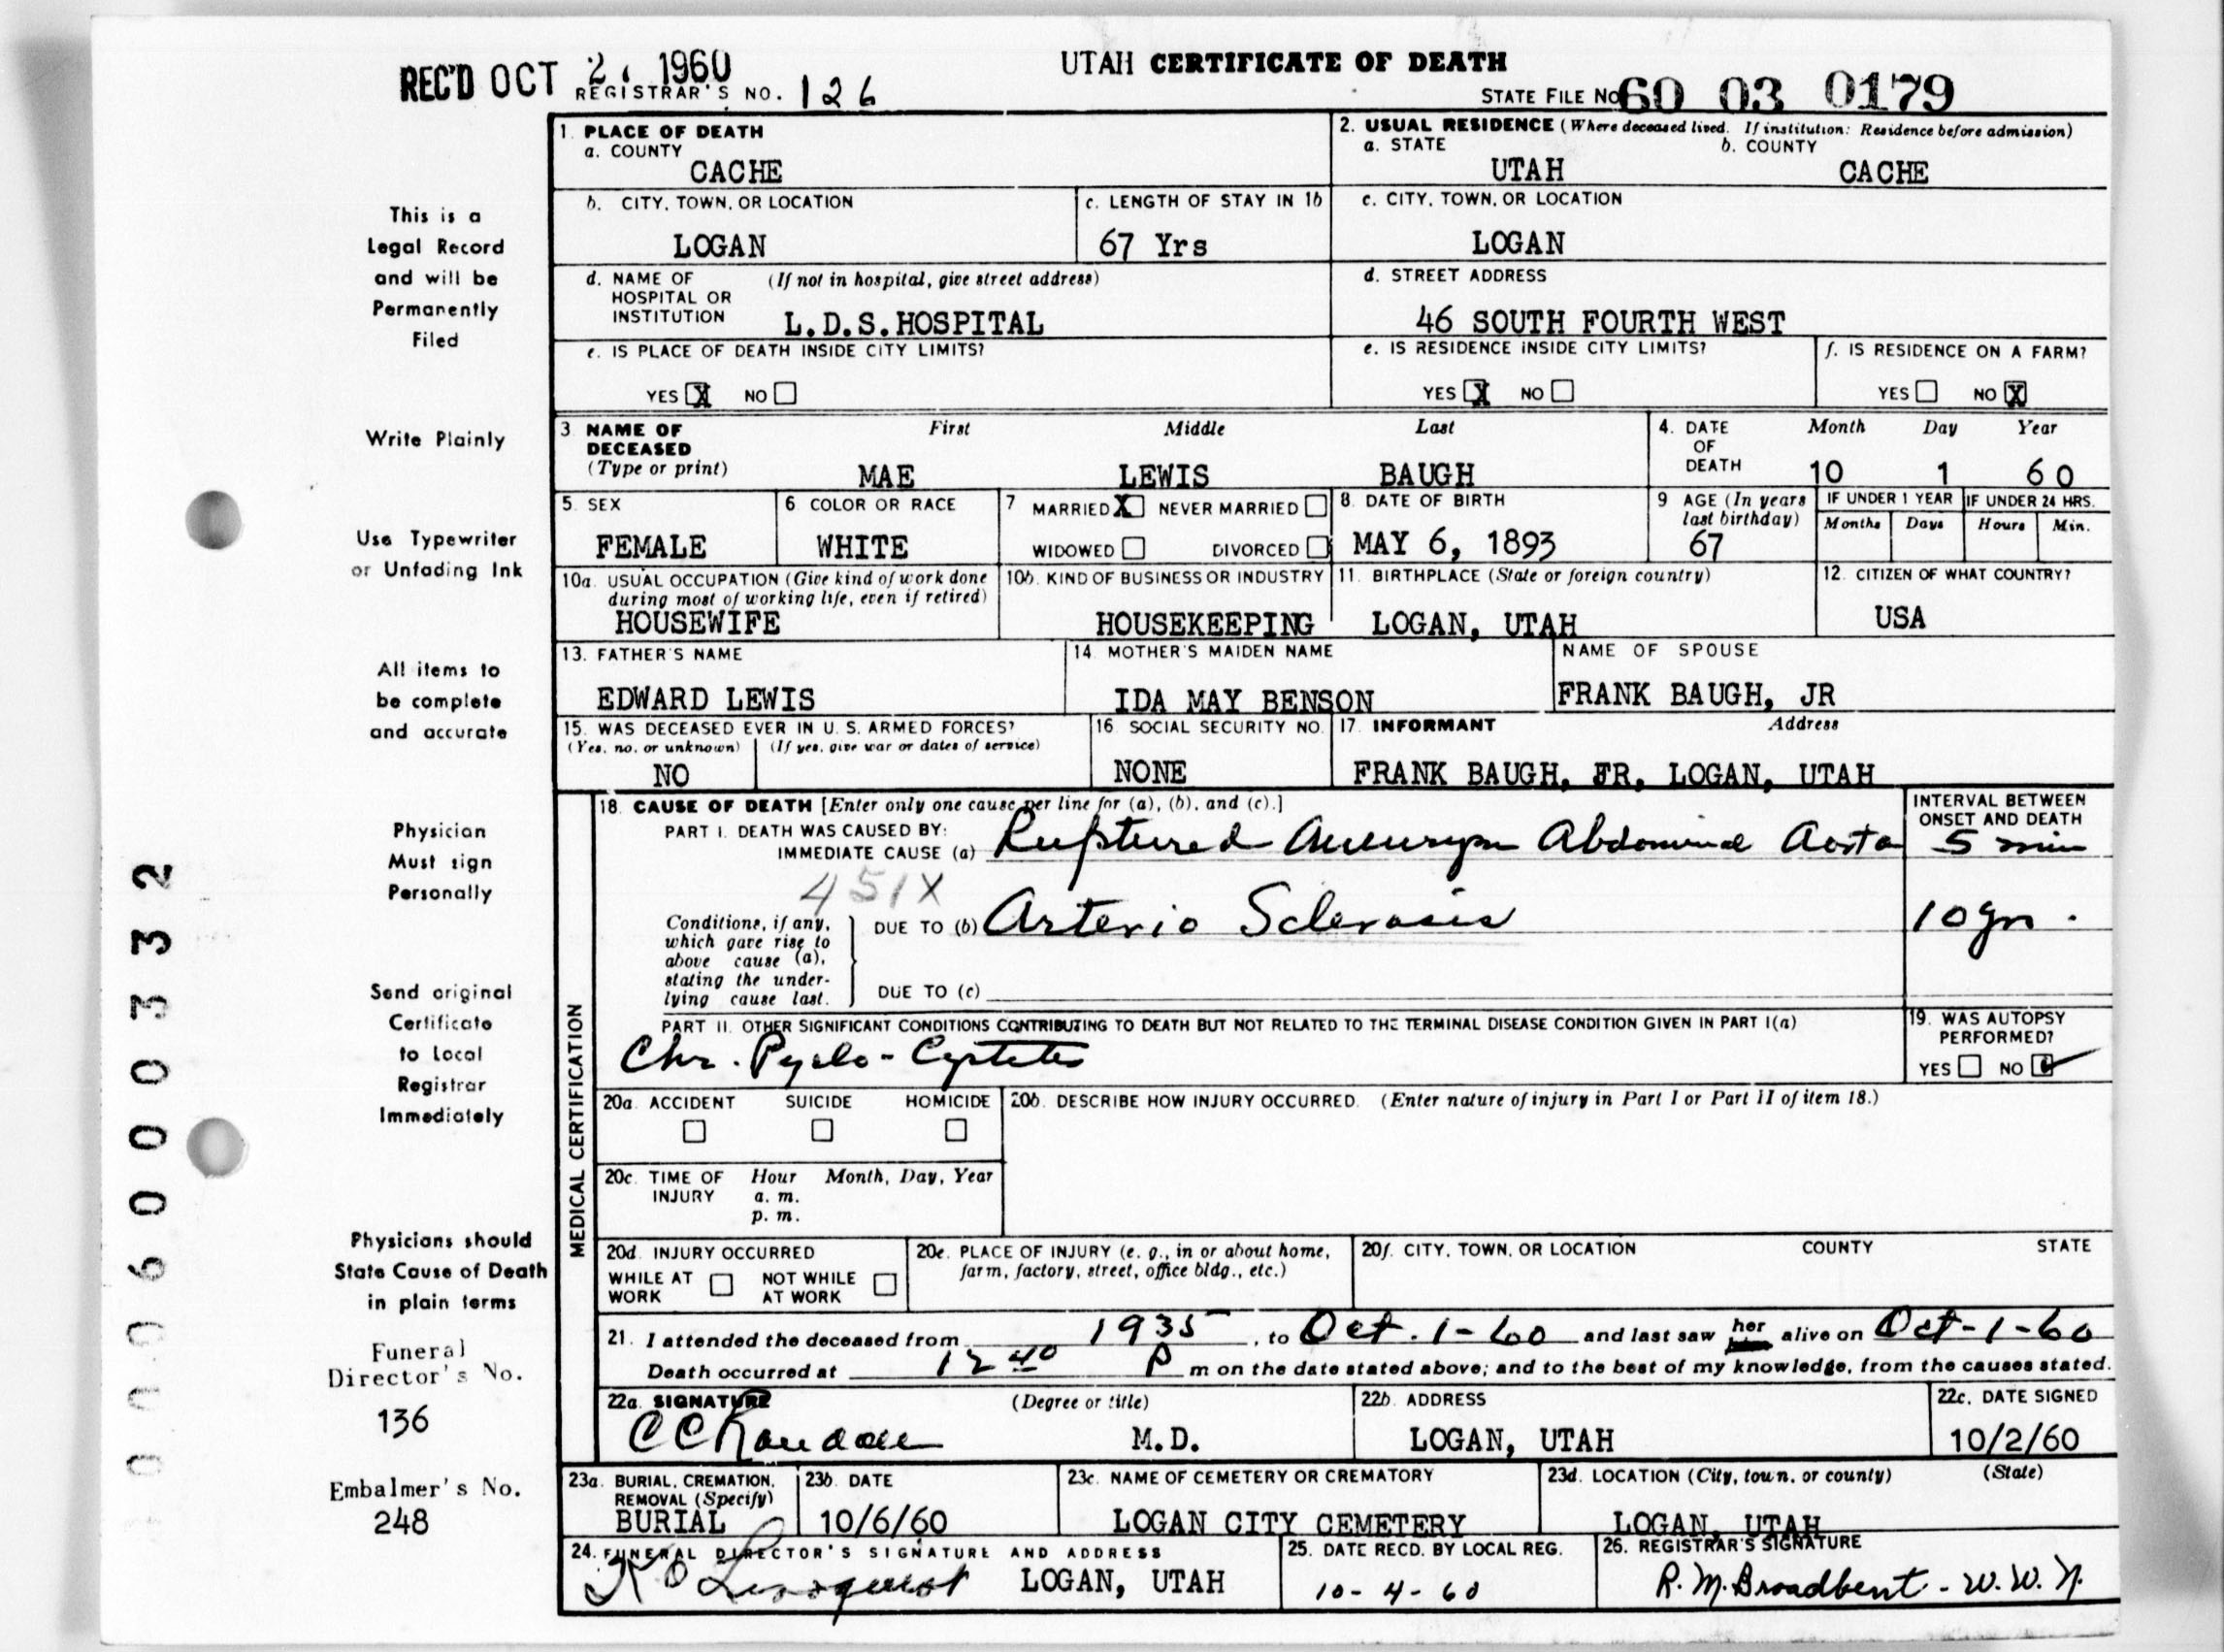 REC'D OCT 2 1960
REGISTRAR'S NO. 126
UTAH CERTIFICATE OF DEATH
STATE FILE NO 60 03 0179
This is a
Legal Record
and will be
Permanently
Filed
Write Plainly
Use Typewriter
or Unfading Ink
All items to
be complete
and accurate
Physician
Must sign
Personally
Send original
Certificate
to Local
Registrar
Immediately
Physicians should
State Cause of Death
in plain terms
Funeral
Director's No.
136
Embalmer's No.
248
1. PLACE OF DEATH
a. COUNTY
CACHE
b. CITY, TOWN, OR LOCATION
LOGAN
c. LENGTH OF STAY IN 1b
67 Yrs
d. NAME OF HOSPITAL OR INSTITUTION (If not in hospital, give street address)
L.D.S.HOSPITAL
e. IS PLACE OF DEATH INSIDE CITY LIMITS?
YES X NO
2. USUAL RESIDENCE (Where deceased lived. If institution: Residence before admission)
a. STATE
UTAH
b. COUNTY
CACHE
c. CITY, TOWN, OR LOCATION
LOGAN
d. STREET ADDRESS
46 SOUTH FOURTH WEST
e. IS RESIDENCE INSIDE CITY LIMITS?
YES X NO
f. IS RESIDENCE ON A FARM?
YES NO X
3 NAME OF DECEASED (Type or print)
First Middle Last
MAE LEWIS BAUGH
4. DATE OF DEATH
Month Day Year
10 1 60
5. SEX
FEMALE
6 COLOR OR RACE
WHITE
7 MARRIED X NEVER MARRIED
WIDOWED DIVORCED
8. DATE OF BIRTH
MAY 6, 1893
9 AGE (In years last birthday)
67
IF UNDER 1 YEAR
Months Days
IF UNDER 24 HRS.
Hours Min.
10a. USUAL OCCUPATION (Give kind of work done during most of working life, even if retired)
HOUSEWIFE
10b. KIND OF BUSINESS OR INDUSTRY
HOUSEKEEPING
11. BIRTHPLACE (State or foreign country)
LOGAN, UTAH
12. CITIZEN OF WHAT COUNTRY?
USA
13. FATHER'S NAME
EDWARD LEWIS
14. MOTHER'S MAIDEN NAME
IDA MAY BENSON
NAME OF SPOUSE
FRANK BAUGH, JR
15. WAS DECEASED EVER IN U. S. ARMED FORCES?
(Yes, no, or unknown) (If yes, give war or dates of service)
NO
16. SOCIAL SECURITY NO.
NONE
17. INFORMANT Address
FRANK BAUGH, JR, LOGAN, UTAH
MEDICAL CERTIFICATION
18. CAUSE OF DEATH [Enter only one cause per line for (a), (b), and (c).]
INTERVAL BETWEEN ONSET AND DEATH
PART I. DEATH WAS CAUSED BY:
IMMEDIATE CAUSE (a) Ruptured Aneurysm Abdominal Aorta 5 min
451X
Conditions, if any, which gave rise to above cause (a), stating the underlying cause last.
DUE TO (b) Arterio Sclerosis 10 yrs.
DUE TO (c)
PART II. OTHER SIGNIFICANT CONDITIONS CONTRIBUTING TO DEATH BUT NOT RELATED TO THE TERMINAL DISEASE CONDITION GIVEN IN PART I(a)
Chr. Pyelo-Cystitis
19. WAS AUTOPSY PERFORMED?
YES NO
20a. ACCIDENT SUICIDE HOMICIDE
20b. DESCRIBE HOW INJURY OCCURRED. (Enter nature of injury in Part I or Part II of item 18.)
20c. TIME OF INJURY
Hour Month, Day, Year
a. m.
p. m.
20d. INJURY OCCURRED
WHILE AT WORK NOT WHILE AT WORK
20e. PLACE OF INJURY (e. g., in or about home, farm, factory, street, office bldg., etc.)
20f. CITY, TOWN, OR LOCATION COUNTY STATE
21. I attended the deceased from 1935, to Oct. 1-60 and last saw her alive on Oct-1-60
Death occurred at 12 40 P m on the date stated above; and to the best of my knowledge, from the causes stated.
22a. SIGNATURE (Degree or title)
C C Randall M.D.
22b. ADDRESS
LOGAN, UTAH
22c. DATE SIGNED
10/2/60
23a. BURIAL, CREMATION, REMOVAL (Specify)
BURIAL
23b. DATE
10/6/60
23c. NAME OF CEMETERY OR CREMATORY
LOGAN CITY CEMETERY
23d. LOCATION (City, town, or county) (State)
LOGAN, UTAH
24. FUNERAL DIRECTOR'S SIGNATURE AND ADDRESS
Lindquist LOGAN, UTAH
25. DATE RECD. BY LOCAL REG.
10-4-60
26. REGISTRAR'S SIGNATURE
R. M. Broadbent - W. W. N.